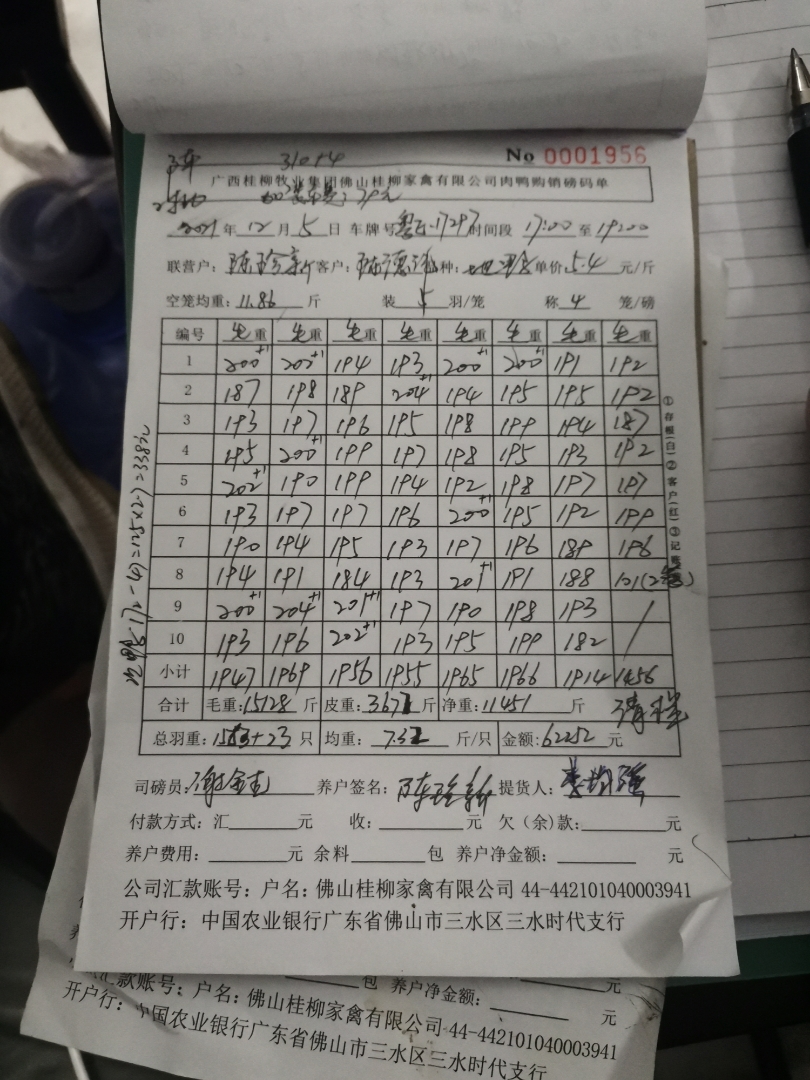 31014
No 0001956
广西桂柳牧业集团佛山桂柳家禽有限公司肉鸭购销磅码单
2021年 12 月 5 日 车牌号 17297 时间段 17:00 至 19:00
联营户: 陈珍新 客户: 陈德 种: 单价: 5.4 元/斤
空笼均重: 11.86 斤 装 5 羽/笼 称 4 笼/磅
编号 毛重 毛重 毛重 毛重 毛重 毛重 毛重 毛重
1 200+1 202+1 194 193 200+1 200+1 191 192
2 187 198 189 204+1 194 195 195 192
3 193 197 196 195 198 199 194 187
4 195 200+1 199 197 198 195 193 192
5 202+1 190 199 194 192 198 197 197
6 193 197 197 196 200+1 195 192 199
7 190 194 195 193 197 196 189 196
8 194 191 184 193 201+1 191 188 101(2笼)
9 200+1 204+1 201+1 197 190 198 193 /
10 193 196 202+1 193 195 199 182 /
小计 1947 1969 1956 1955 1965 1966 1914 1456
合计 毛重: 15128 斤 皮重: 斤 净重: 11451 斤
总羽重: 只 均重: 斤/只 金额: 62252 元
司磅员: 养户签名: 陈珍新 提货人:
付款方式: 汇 元 收: 元 欠(余)款: 元
养户费用: 元 余料 包 养户净金额: 元
公司汇款账号: 户名: 佛山桂柳家禽有限公司 44-442101040003941
开户行: 中国农业银行广东省佛山市三水区三水时代支行
①存根(白)②客户(红)③记
包 养户净金额: 元
汇款账号: 户名: 佛山桂柳家禽有限公司 44-442101040003941
开户行: 中国农业银行广东省佛山市三水区三水时代支行